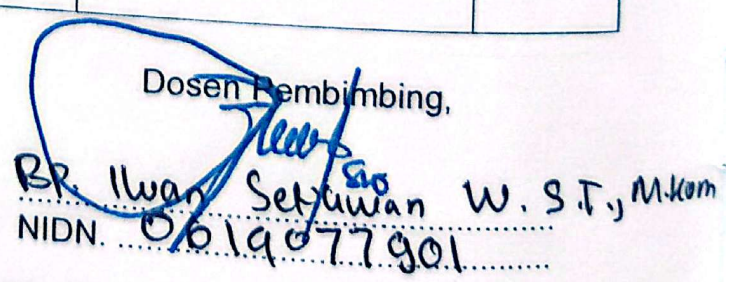 Dosen Pembimbing,
BR. Iwan Setyawan W. S.T., M.Kom
NIDN. 0619077901